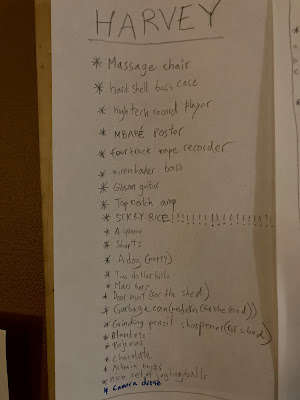 HARVEY
* Massage chair
* hard shell bass case
* high tech record player
* MBAPÉ Poster
* four track tape recorder
* ricenbaker bass
* Gibson guitar
* Top notch amp
* STICKY RICE!!!!!!!!!!!!!!!!!!!!
* A iphone
* Shorts
* A dog (merry)
* Two dollar bills
* Mars bars
* Door mat (for the shed)
* Garbage can (modern (for the shed))
* Grinding pencil sharpener (for shed)
* Blankets
* Pajamas
* chocolate
* books
* nice set of juglingballs
* camera drone